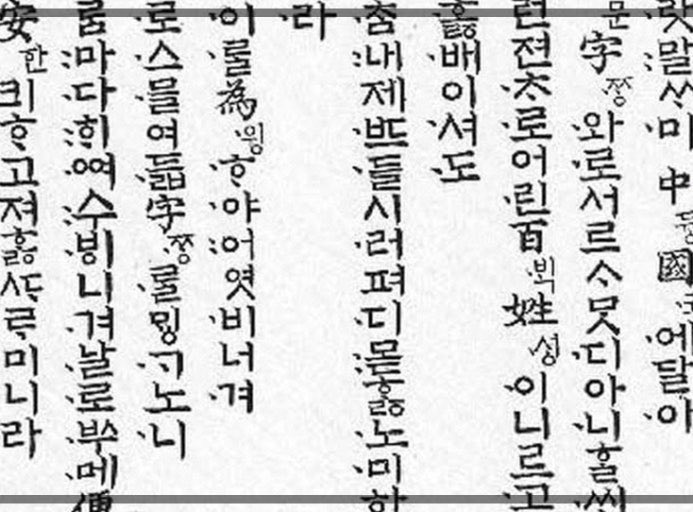 랏〯말〯ᄊᆞ미〮 中듀ᇰ國귁에〮달아〮
문字ᄍᆞᆼ〮와〮로서르ᄉᆞᄆᆞᆺ디〮아니〮ᄒᆞᆯᄊᆡ〮
런젼ᄎᆞ〮로〮어린百ᄇᆡᆨ〮姓셔ᇰ〮이〮니르고〮
ᄒᆞᇙ배〮이셔〮도〮
ᄎᆞᆷ내〯제ᄠᅳ〮들〮시러〮펴디〮몯〯ᄒᆞᇙ노〮미〮하
라〮
이〮ᄅᆞᆯ〮為윙〮ᄒᆞ〮야〮어〯엿비〮너겨〮
로〮스〮믈〮여듧〮字ᄍᆞᆼ〮ᄅᆞᆯ〮ᄆᆡᇰᄀᆞ〮노니〮
ᄅᆞᆷ마〯다〮ᄒᆡ〯ᅇᅧ〮수〯ᄫᅵ〮니겨〮날〮로〮ᄡᅮ〮메〮便
安ᅙᅡᆫ킈〮ᄒᆞ고〮져ᄒᆞᇙᄯᆞᄅᆞ미〮니라〮